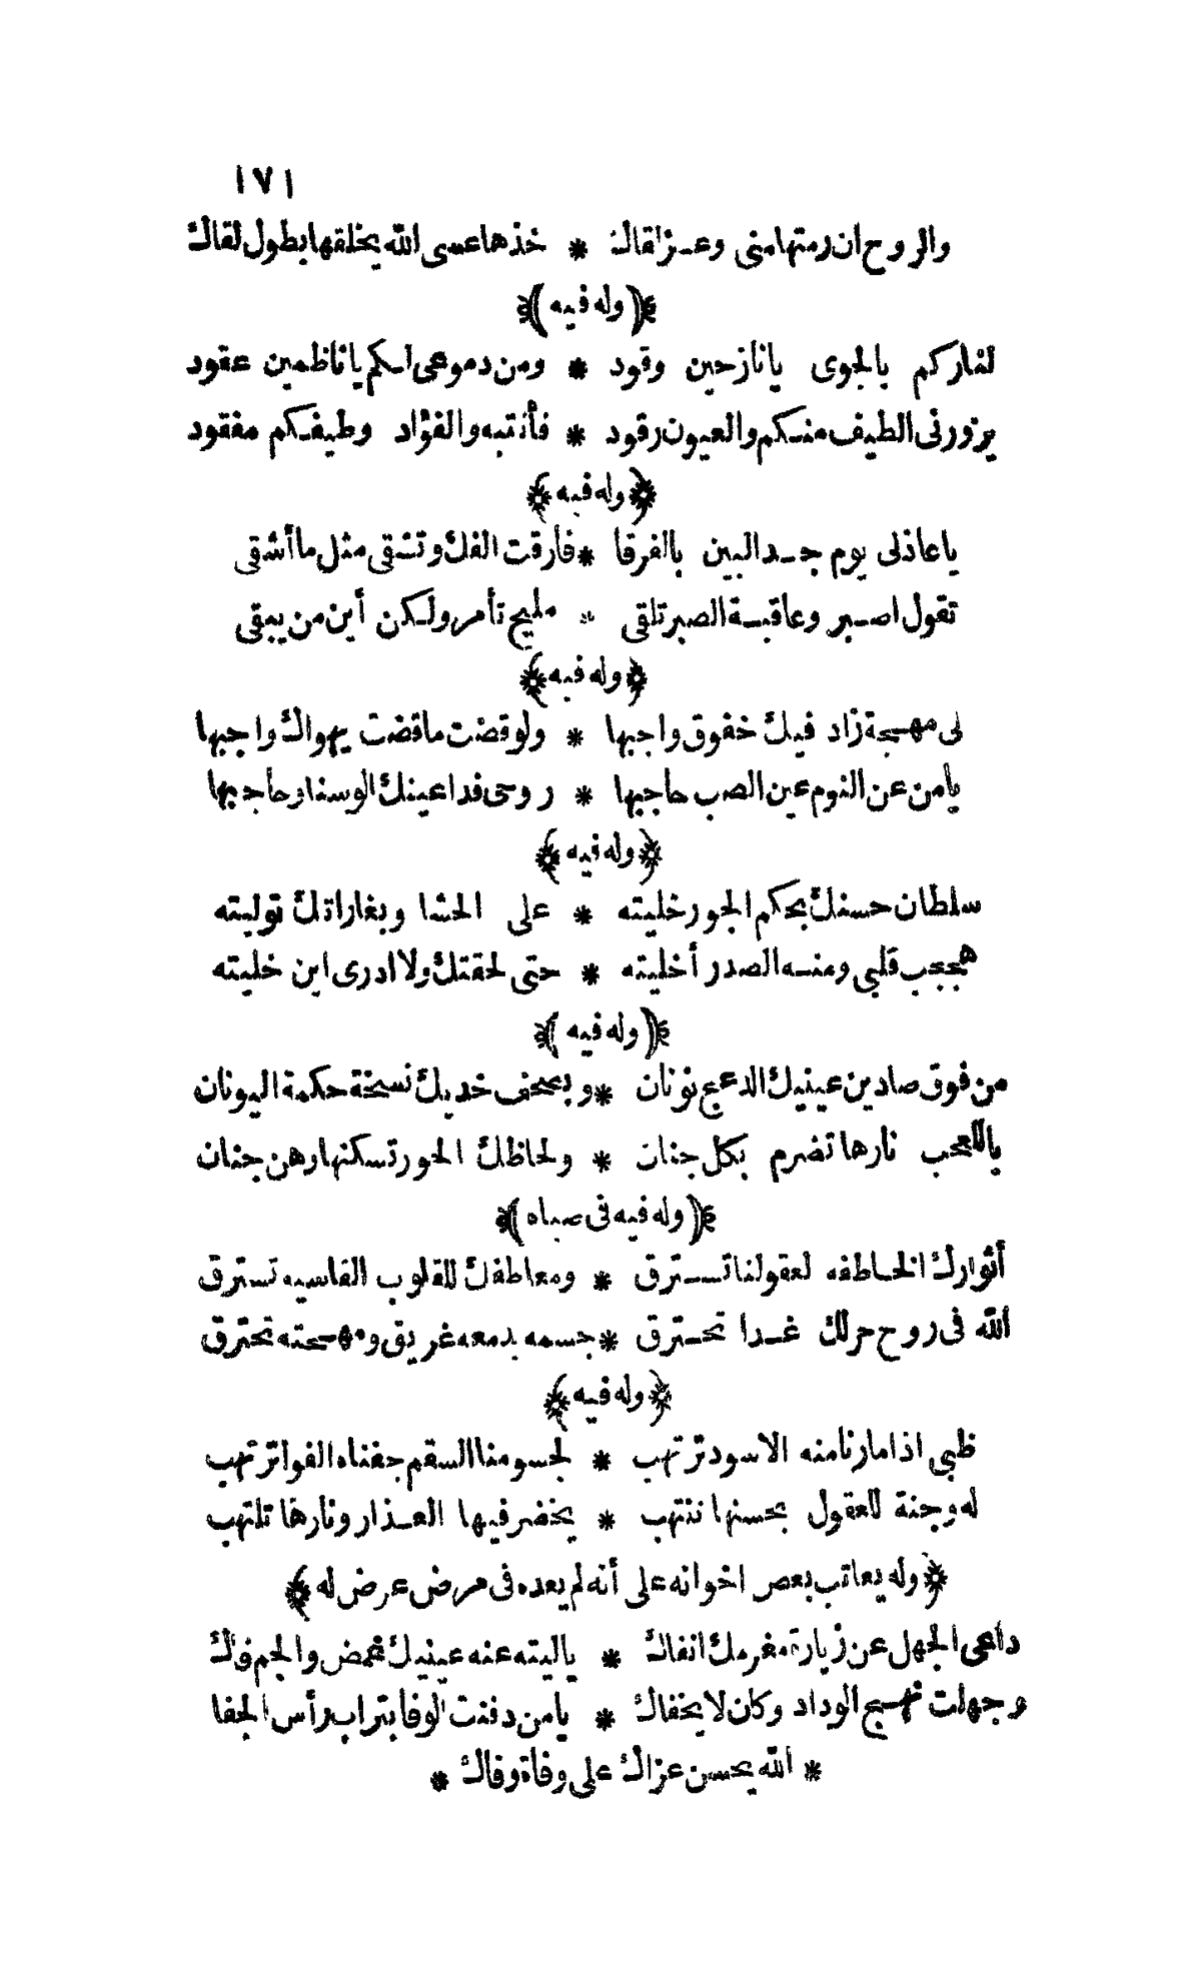 ١٧١
والروح ان رمتها منى وعـز لقاك * خذها عسى الله يخلقها بطول لقاك
﴿ وله فيه ﴾
لناركم بالجوى يانازحين وقود * ومن دموعى لـكم ياناظمين عقود
يزورنى الطيف منـكم والعيون رقود * فأنتبه والفؤاد وطيفـكم مفقود
﴿ وله فيه ﴾
ياعاذلى يوم جـد البين بالفرقا * فارقت الفك وتشقى مثل ما أشقى
تقول اصـبر وعاقبـة الصبر تلقى * مليح تأمر ولـكن أين من يبقى
﴿ وله فيه ﴾
لى مهـجة زاد فيك خفوق واجبها * ولو قضت ماقضت بهواك واجبها
يامن عن النوم عين الصب حاجبها * روحى فدا عينك الوسنا وحاجبها
﴿ وله فيه ﴾
سلطان حسنك بحكم الجور خليته * على الحشا وبغاراتك توليته
هججب قلبى ومنـه الصدر أخليته * حتى لحقتك ولا ادرى اين خليته
﴿ وله فيه ﴾
من فوق صادين عينيك الدعج نونان * وبصحف خديك نسخة حكمة اليونان
ياللعجب نارها تضرم بكل جنان * ولحاظك الحور تسكنها وهن جنان
﴿ وله فيه فى صباه ﴾
أثوارك الخـاطفه لعقولنا تـــترق * ومعاطفك للقلوب القاسيه تسترق
الله فى روح حر لك غـدا تحـترق * جسمه بدمعه غريق ومهـجته تحترق
﴿ وله فيه ﴾
ظبى اذا مارنا منه الاسود ترتهب * لجسومنا السقم جفناه الفواتر تهب
له وجنة للعقول بحسنها تنتهب * يخضر فيها العـذار ونارها تلتهب
﴿ وله يعاتب بعص اخوانه على أنه لم يعده فى مرض عرض له ﴾
داعى الجهل عن زيارة مغرمك انفاك * ياليته عنه عينيك غمض والجم فاك
وجهلت نهـج الوداد وكان لا يخفاك * يامن دفنت الوفا بتراب رأس الجفا
* الله يحسن عزاك على وفاة وفاك *